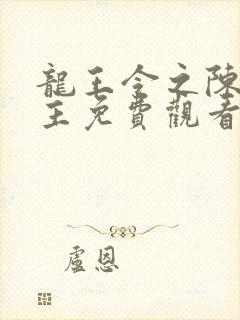 龍王令之陳
王免費觀看
盧恩